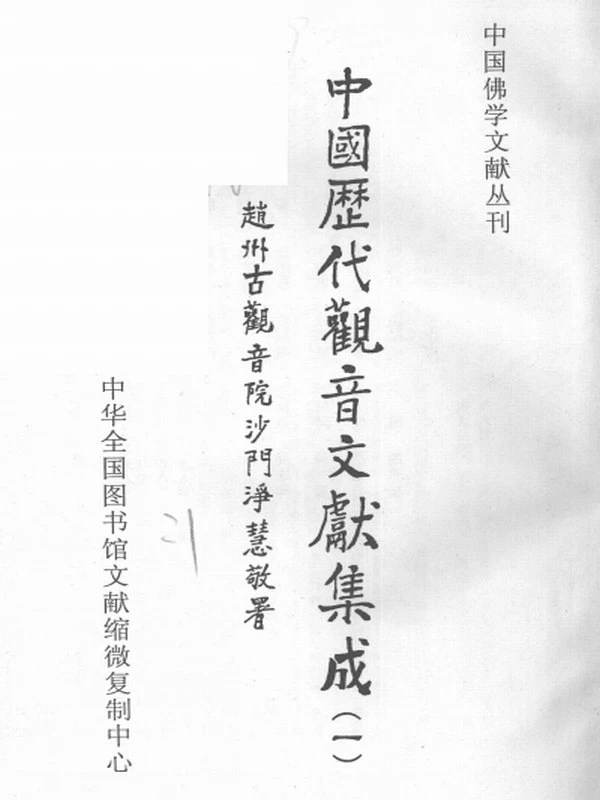 中国佛学文献丛刊
中國歷代觀音文獻集成(一)
趙州古觀音院沙門淨慧敬署
中华全国图书馆文献缩微复制中心